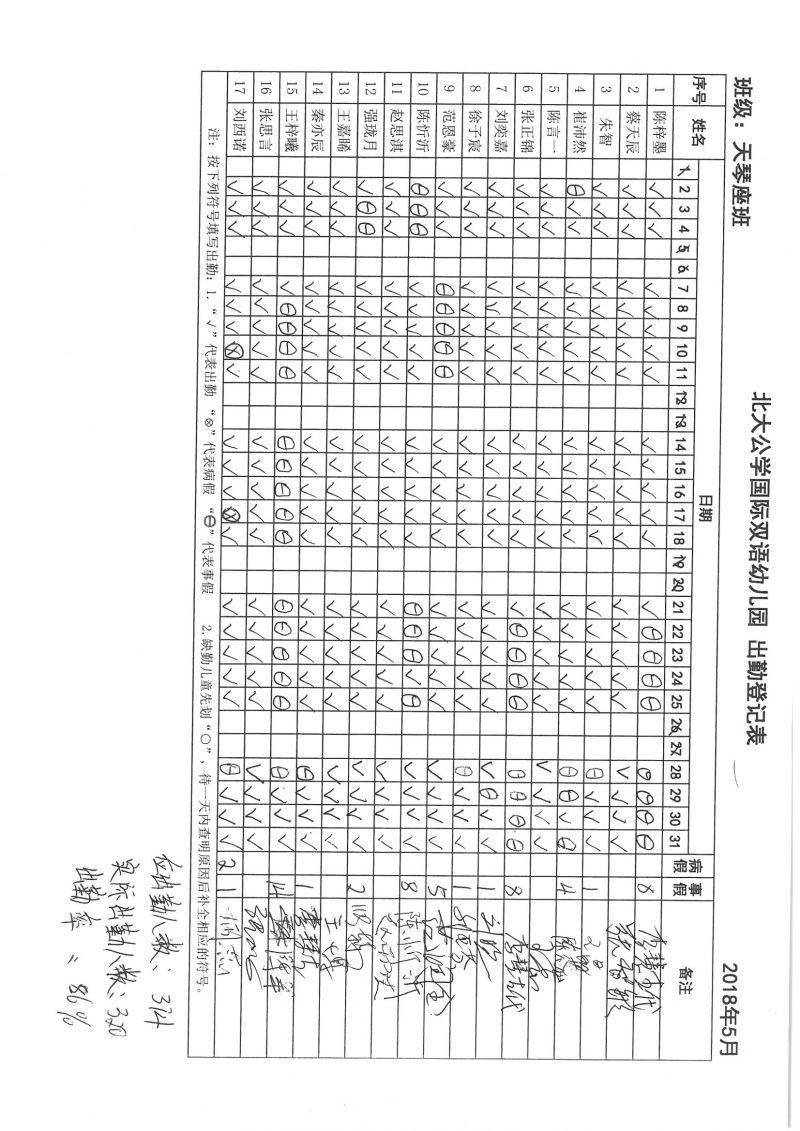 北大公学国际双语幼儿园 出勤登记表
班级：天琴座班 2018年5月
序号 姓名 日期 病假 事假 备注
1 2 3 4 5 6 7 8 9 10 11 12 13 14 15 16 17 18 19 20 21 22 23 24 25 26 27 28 29 30 31
1 陈梓墨 √ √ √ √ √ √ √ √ √ √ √ √ √ √ ⊖ ⊖ ⊖ ⊖ ⊖ ⊖ ⊖ ⊖ 8
2 蔡天辰 √ √ √ √ √ √ √ √ √ √ √ √ √ √ √ √ √ √ √ √ √ √
3 朱智 √ √ √ √ √ √ √ √ √ √ √ √ √ √ √ √ √ √ ⊖ √ √ √ 1
4 崔沛然 ⊖ √ √ √ √ √ √ √ √ √ √ √ √ √ √ √ √ √ ⊖ ⊖ √ ⊖ 4
5 陈言一 √ √ √ √ √ √ √ √ √ √ √ √ √ √ √ √ √ √ √ √ √ √
6 张正锦 √ √ √ √ √ √ √ √ √ √ √ √ √ √ ⊖ ⊖ ⊖ ⊖ ⊖ ⊖ ⊖ ⊖ 8
7 刘奕嘉 √ √ √ √ √ √ √ √ √ √ √ √ √ √ √ √ √ √ √ ⊖ √ √ 1
8 徐子宸 √ √ √ √ √ √ √ √ √ √ √ √ √ √ √ √ √ √ ⊖ √ √ √ 1
9 范恩豪 √ √ √ ⊖ ⊖ ⊖ ⊖ ⊖ √ √ √ √ √ √ √ √ √ √ √ √ √ √ 5
10 陈忻沂 ⊖ ⊖ ⊖ √ √ √ √ √ √ √ √ √ √ ⊖ ⊖ ⊖ √ ⊖ √ √ √ √ 8
11 赵思淇 √ √ √ √ √ √ √ √ √ √ √ √ √ √ √ √ √ √ √ √ √ √
12 强珑月 √ ⊖ ⊖ √ √ √ √ √ √ √ √ √ √ √ √ √ √ √ √ √ √ √ 2
13 王嘉晞 √ √ √ √ √ √ √ √ √ √ √ √ √ √ √ √ √ √ √ √ √ √
14 秦亦辰 √ √ √ √ √ √ √ √ √ √ √ √ √ √ √ √ √ √ ⊖ √ √ √ 1
15 王梓曦 √ √ √ √ ⊖ ⊖ ⊖ ⊖ ⊖ ⊖ ⊖ ⊖ ⊖ ⊖ ⊖ ⊖ ⊖ ⊖ ⊖ √ √ √ 14
16 张思言 √ √ √ √ √ √ √ √ √ √ √ √ √ √ √ √ √ √ √ √ √ √
17 刘西诺 √ √ √ √ √ √ ⊗ √ √ √ √ ⊗ √ √ √ √ √ √ ⊖ √ √ √ 2 1
注：按下列符号填写出勤：1.“√”代表出勤 “⊗”代表病假 “⊖”代表事假 2.缺勤儿童先划“○”，待一天内查明原因后补全相应的符号。
应出勤人数：374
实际出勤人数：320
出勤率：86%